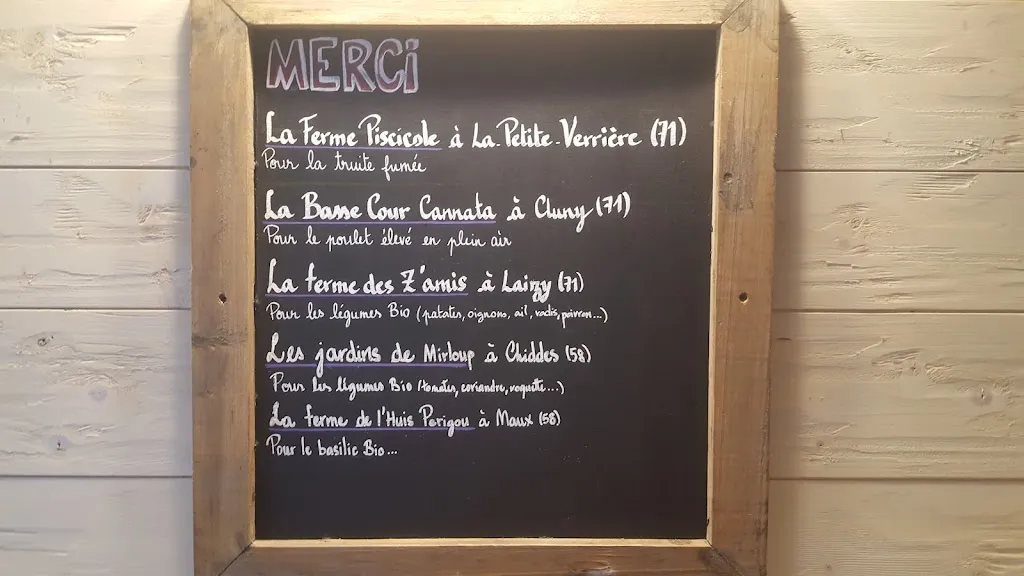 MERCi
La Ferme Piscicole à La-Petite-Verrière (71)
Pour la truite fumée
La Basse Cour Cannata à Cluny (71)
Pour le poulet élevé en plein air
La ferme des Z'amis à Laizy (71)
Pour les légumes Bio (patates, oignons, ail, radis, poivron...)
Les jardins de Mirloup à Chiddes (58)
Pour les légumes Bio (tomates, coriandre, roquette...)
La ferme de l'Huis Perigou à Maux (58)
Pour le basilic Bio...